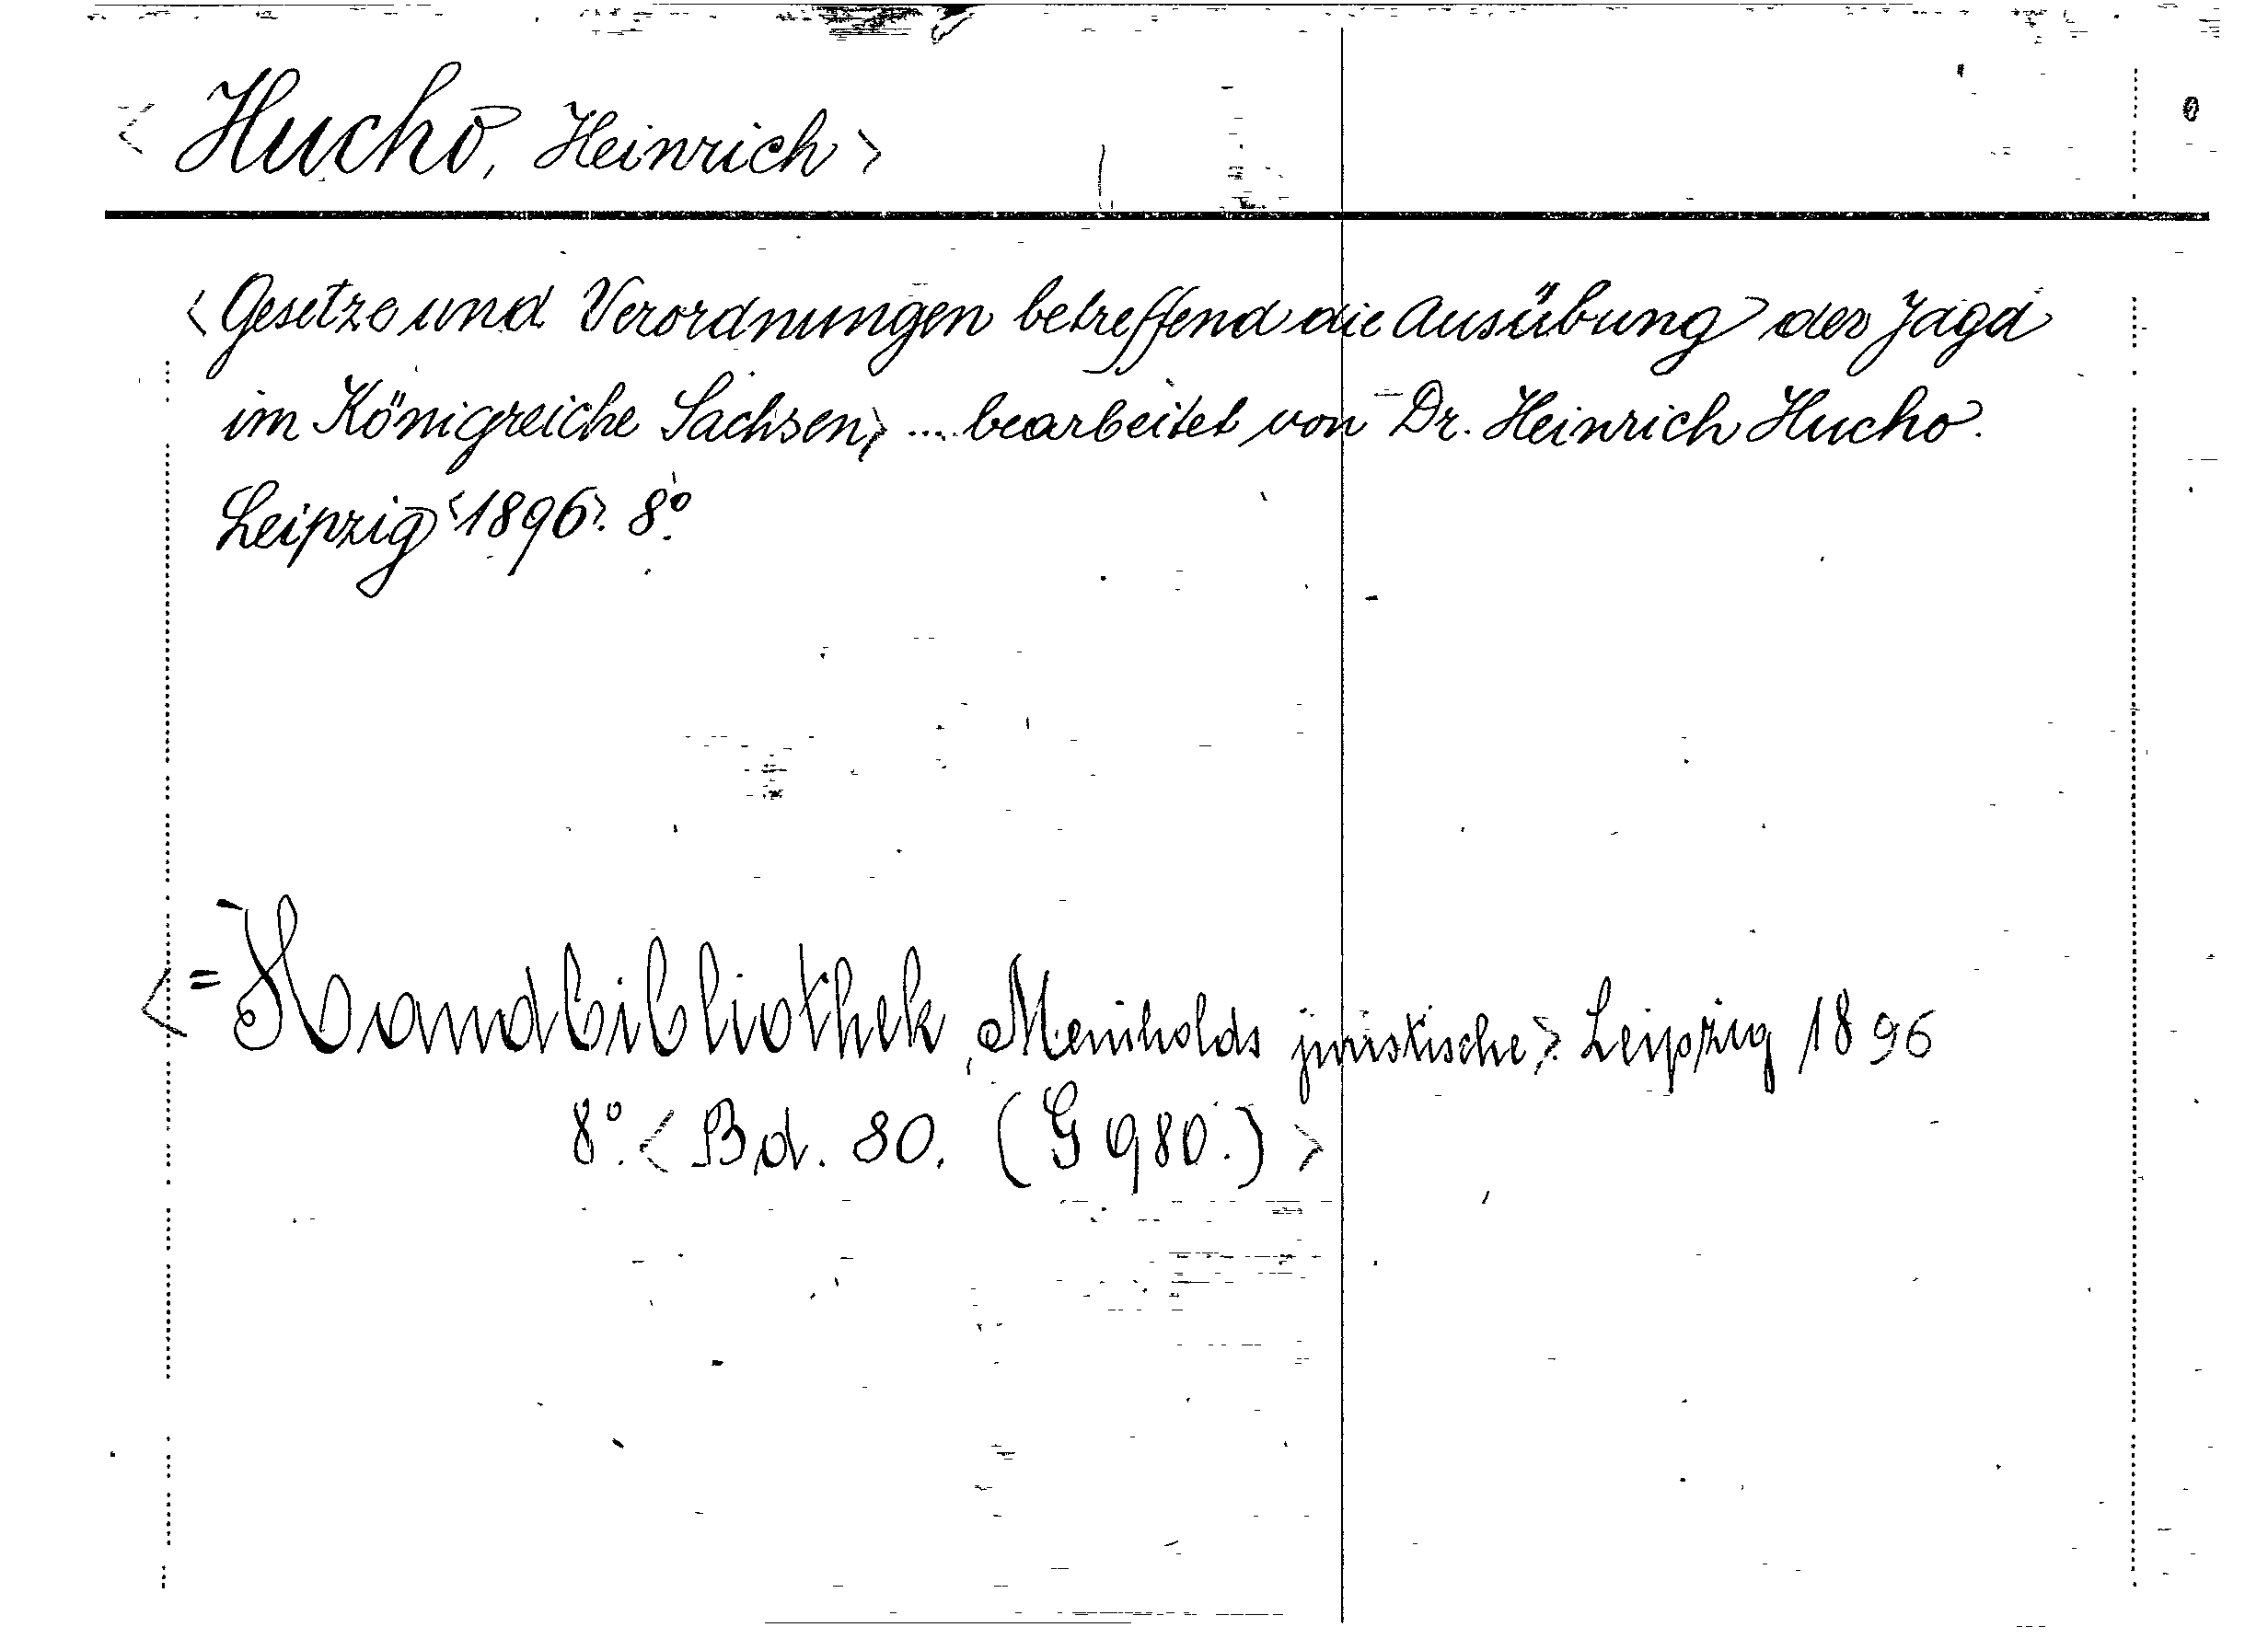 < Hucho, Heinrich >
< Gesetze und Verordnungen betreffend die Ausübung der Jagd
im Königreiche Sachsen, > .... bearbeitet von Dr. Heinrich Hucho.
Leipzig < 1896 >. 8°.
< = Handbibliothek, Meinholds juristische >. Leipzig 1896
8°. < Bd. 80. (G 980.) >